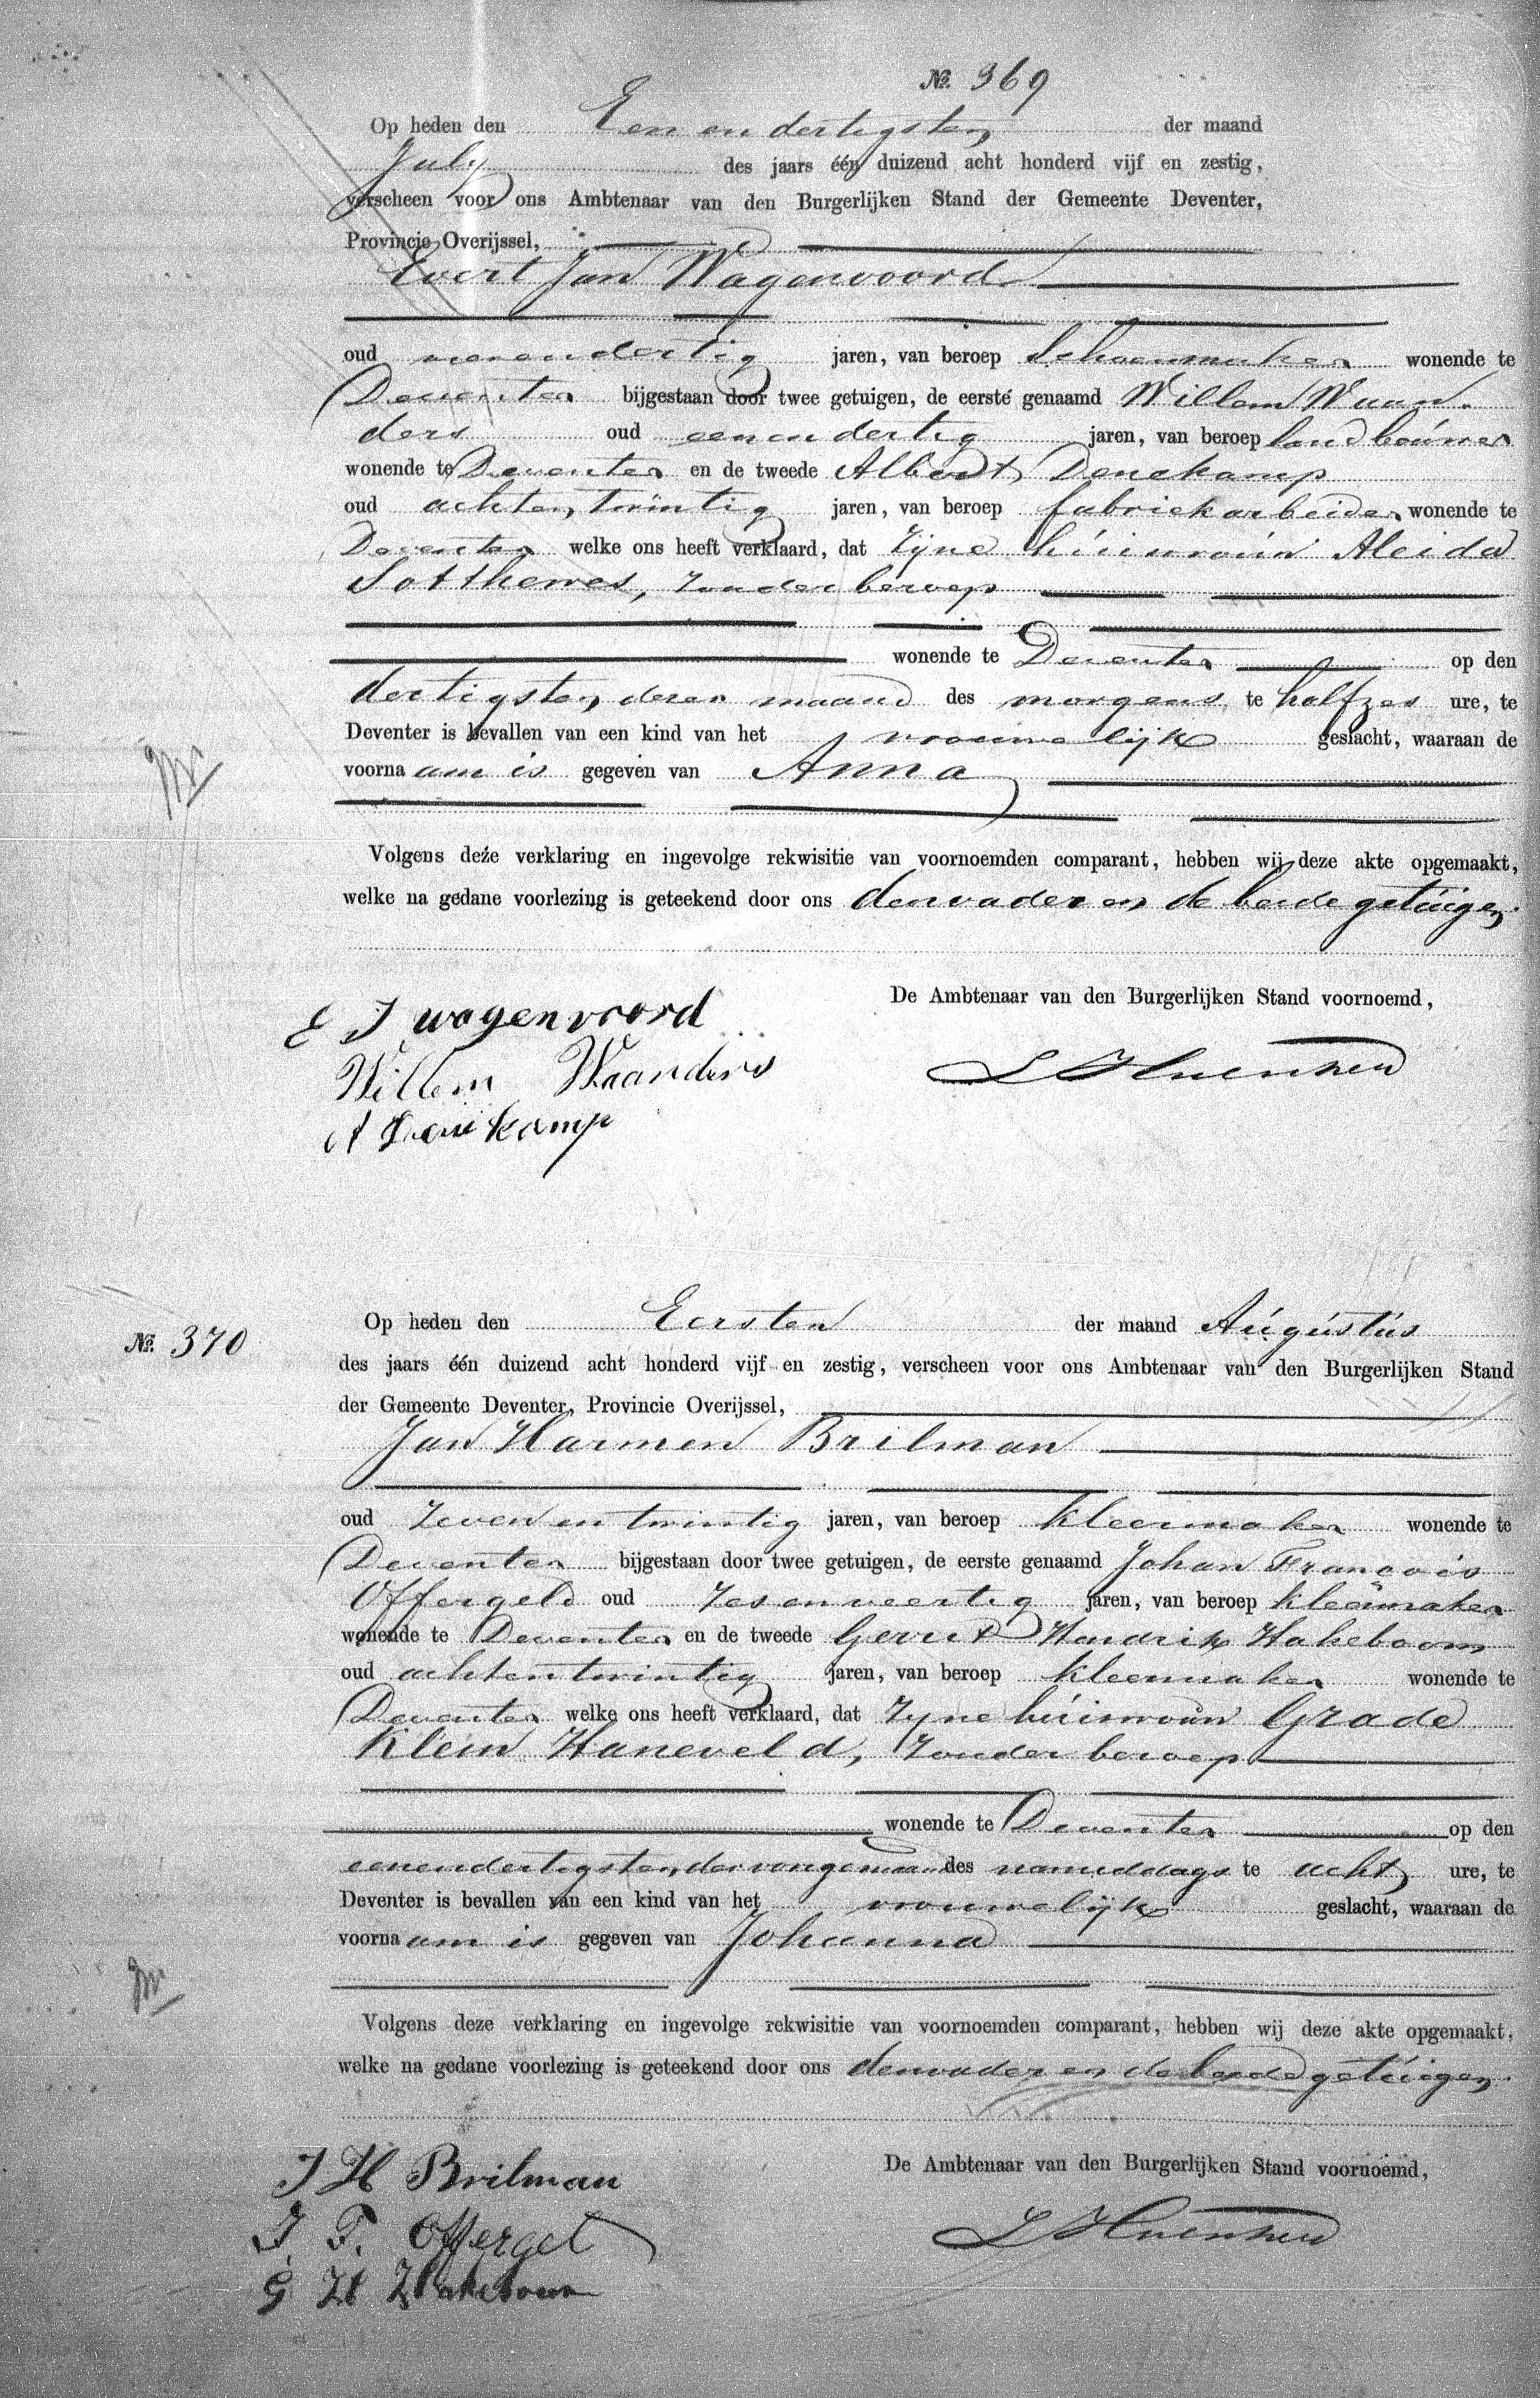 №. 369
Op heden den Een en dertigsten der maand
July des jaars één duizend acht honderd vijf en zestig,
verscheen voor ons Ambtenaar van den Burgerlijken Stand der Gemeente Deventer,
Provincie Overijssel,
Evert Jan Wagenvoord
oud jaren, van beroep Schoenmaker wonende te
Deventer bijgestaan door twee getuigen, de eerste genaamd Willem Waan-
ders oud eenendertig jaren, van beroep landbouwer
wonende te Deventer en de tweede Albert Denekamp
oud achtentwintig jaren, van beroep fabriekarbeider wonende te
Deventer welke ons heeft verklaard, dat Zijne huisvrouw Aleida
Sotthewes, zonder beroep
wonende te Deventer op den
dertigsten dezer maand des morgens te halfzes ure, te
Deventer is bevallen van een kind van het vrouwelijk geslacht, waaraan de
voornaam is gegeven van Anna
Volgens deze verklaring en ingevolge rekwisitie van voornoemden comparant, hebben wij deze akte opgemaakt,
welke na gedane voorlezing is geteekend door ons den vader en de beide getuigen.
De Ambtenaar van den Burgerlijken Stand voornoemd,
E J wagenvoord
Willem Waanders
A Denekamp
№. 370
Op heden den Eersten der maand Augustus
des jaars één duizend acht honderd vijf en zestig, verscheen voor ons Ambtenaar van den Burgerlijken Stand
der Gemeente Deventer, Provincie Overijssel,
Jan Harmen Brilman
oud Zeven en twintig jaren, van beroep kleermaker wonende te
Deventer bijgestaan door twee getuigen, de eerste genaamd Johan François
Offergeld oud Zesenveertig jaren, van beroep kleermaker
wonende te Deventer en de tweede Gerrit Hendrik Hakeboom
oud achtentwintig jaren, van beroep kleermaker wonende te
Deventer welke ons heeft verklaard, dat Zyne huisvrouw Grade
Klein Haneveld, Zonder beroep
wonende te Deventer op den
eenendertigsten der vorige maand des namiddags te acht ure, te
Deventer is bevallen van een kind van het vrouwelijk geslacht, waaraan de
voornaam is gegeven van Johanna
Volgens deze verklaring en ingevolge rekwisitie van voornoemden comparant, hebben wij deze akte opgemaakt,
welke na gedane voorlezing is geteekend door ons den vader en de beide getuigen.
De Ambtenaar van den Burgerlijken Stand voornoemd,
J H Brilman
J. F. Offergel
G H Hakeboom